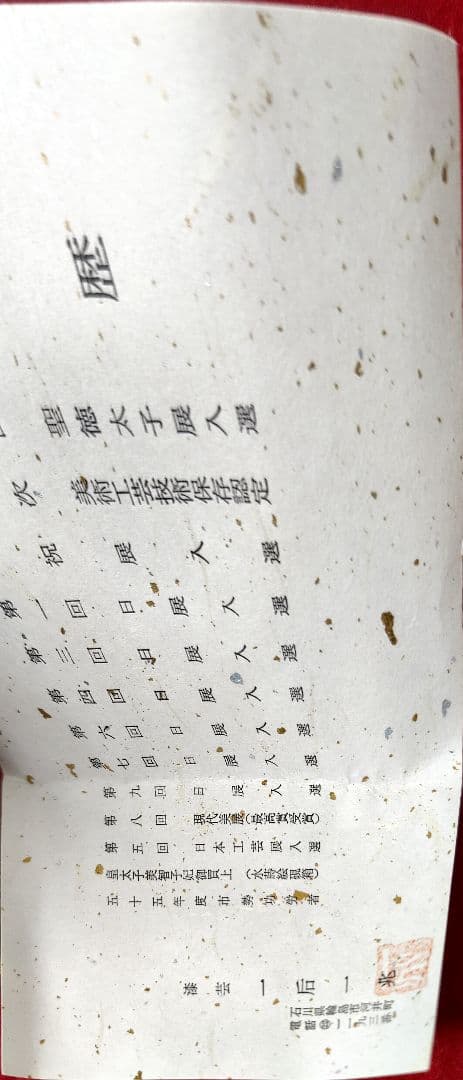 歴
聖徳太子展入選
次 美術工芸技術保存認定
祝展入選
第一回日展入選
第三回日展入選
第四回日展入選
第六回日展入選
第七回日展入選
第九回日展入選
第八回 現代美展(最高賞受賞)
第五回 日本工芸展入選
皇太子美智子妃御買上(水蒔絵硯箱)
五十五年度市勢功労者
漆芸 一后一兆
石川県輪島市河井町
電話㊹一一九三番